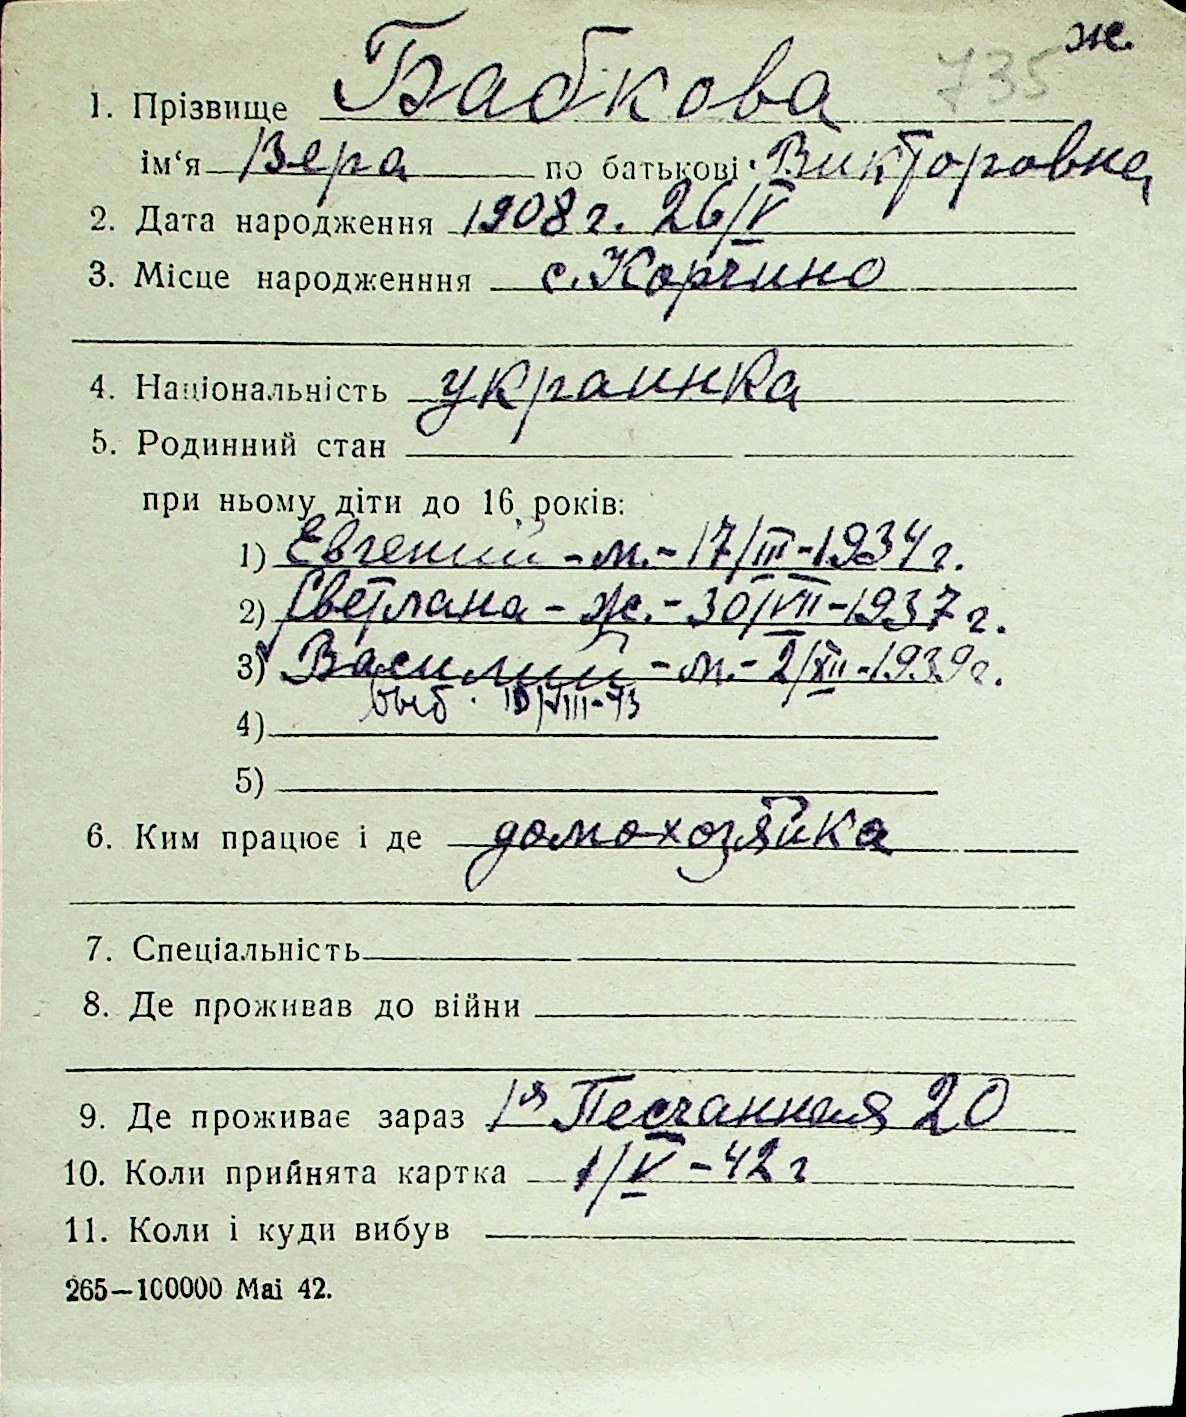 ж.
735
1. Прізвище Бабкова
ім‘я Вера по батькові Викторовна
2. Дата народження 1908 г. 26/V
3. Місце народженння с. Корчино
4. Національність украинка
5. Родинний стан
при ньому діти до 16 років:
1) Евгений - м. - 17/III - 1934 г.
2) Светлана - ж. - 30/VII - 1937 г.
3) Василий - м. - 2/XII - 1939 г.
выб. 10/VIII-43
4)
5)
6. Ким працює і де домохозяйка
7. Спеціальність
8. Де проживав до війни
9. Де проживає зараз 1я Песчанная 20
10. Коли прийнята картка 1/V - 42 г
11. Коли і куди вибув
265—100000 Mai 42.